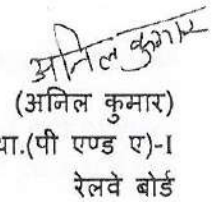 अनिल कुमार
(अनिल कुमार)
था.(पी एण्ड ए)-I
रेलवे बोर्ड